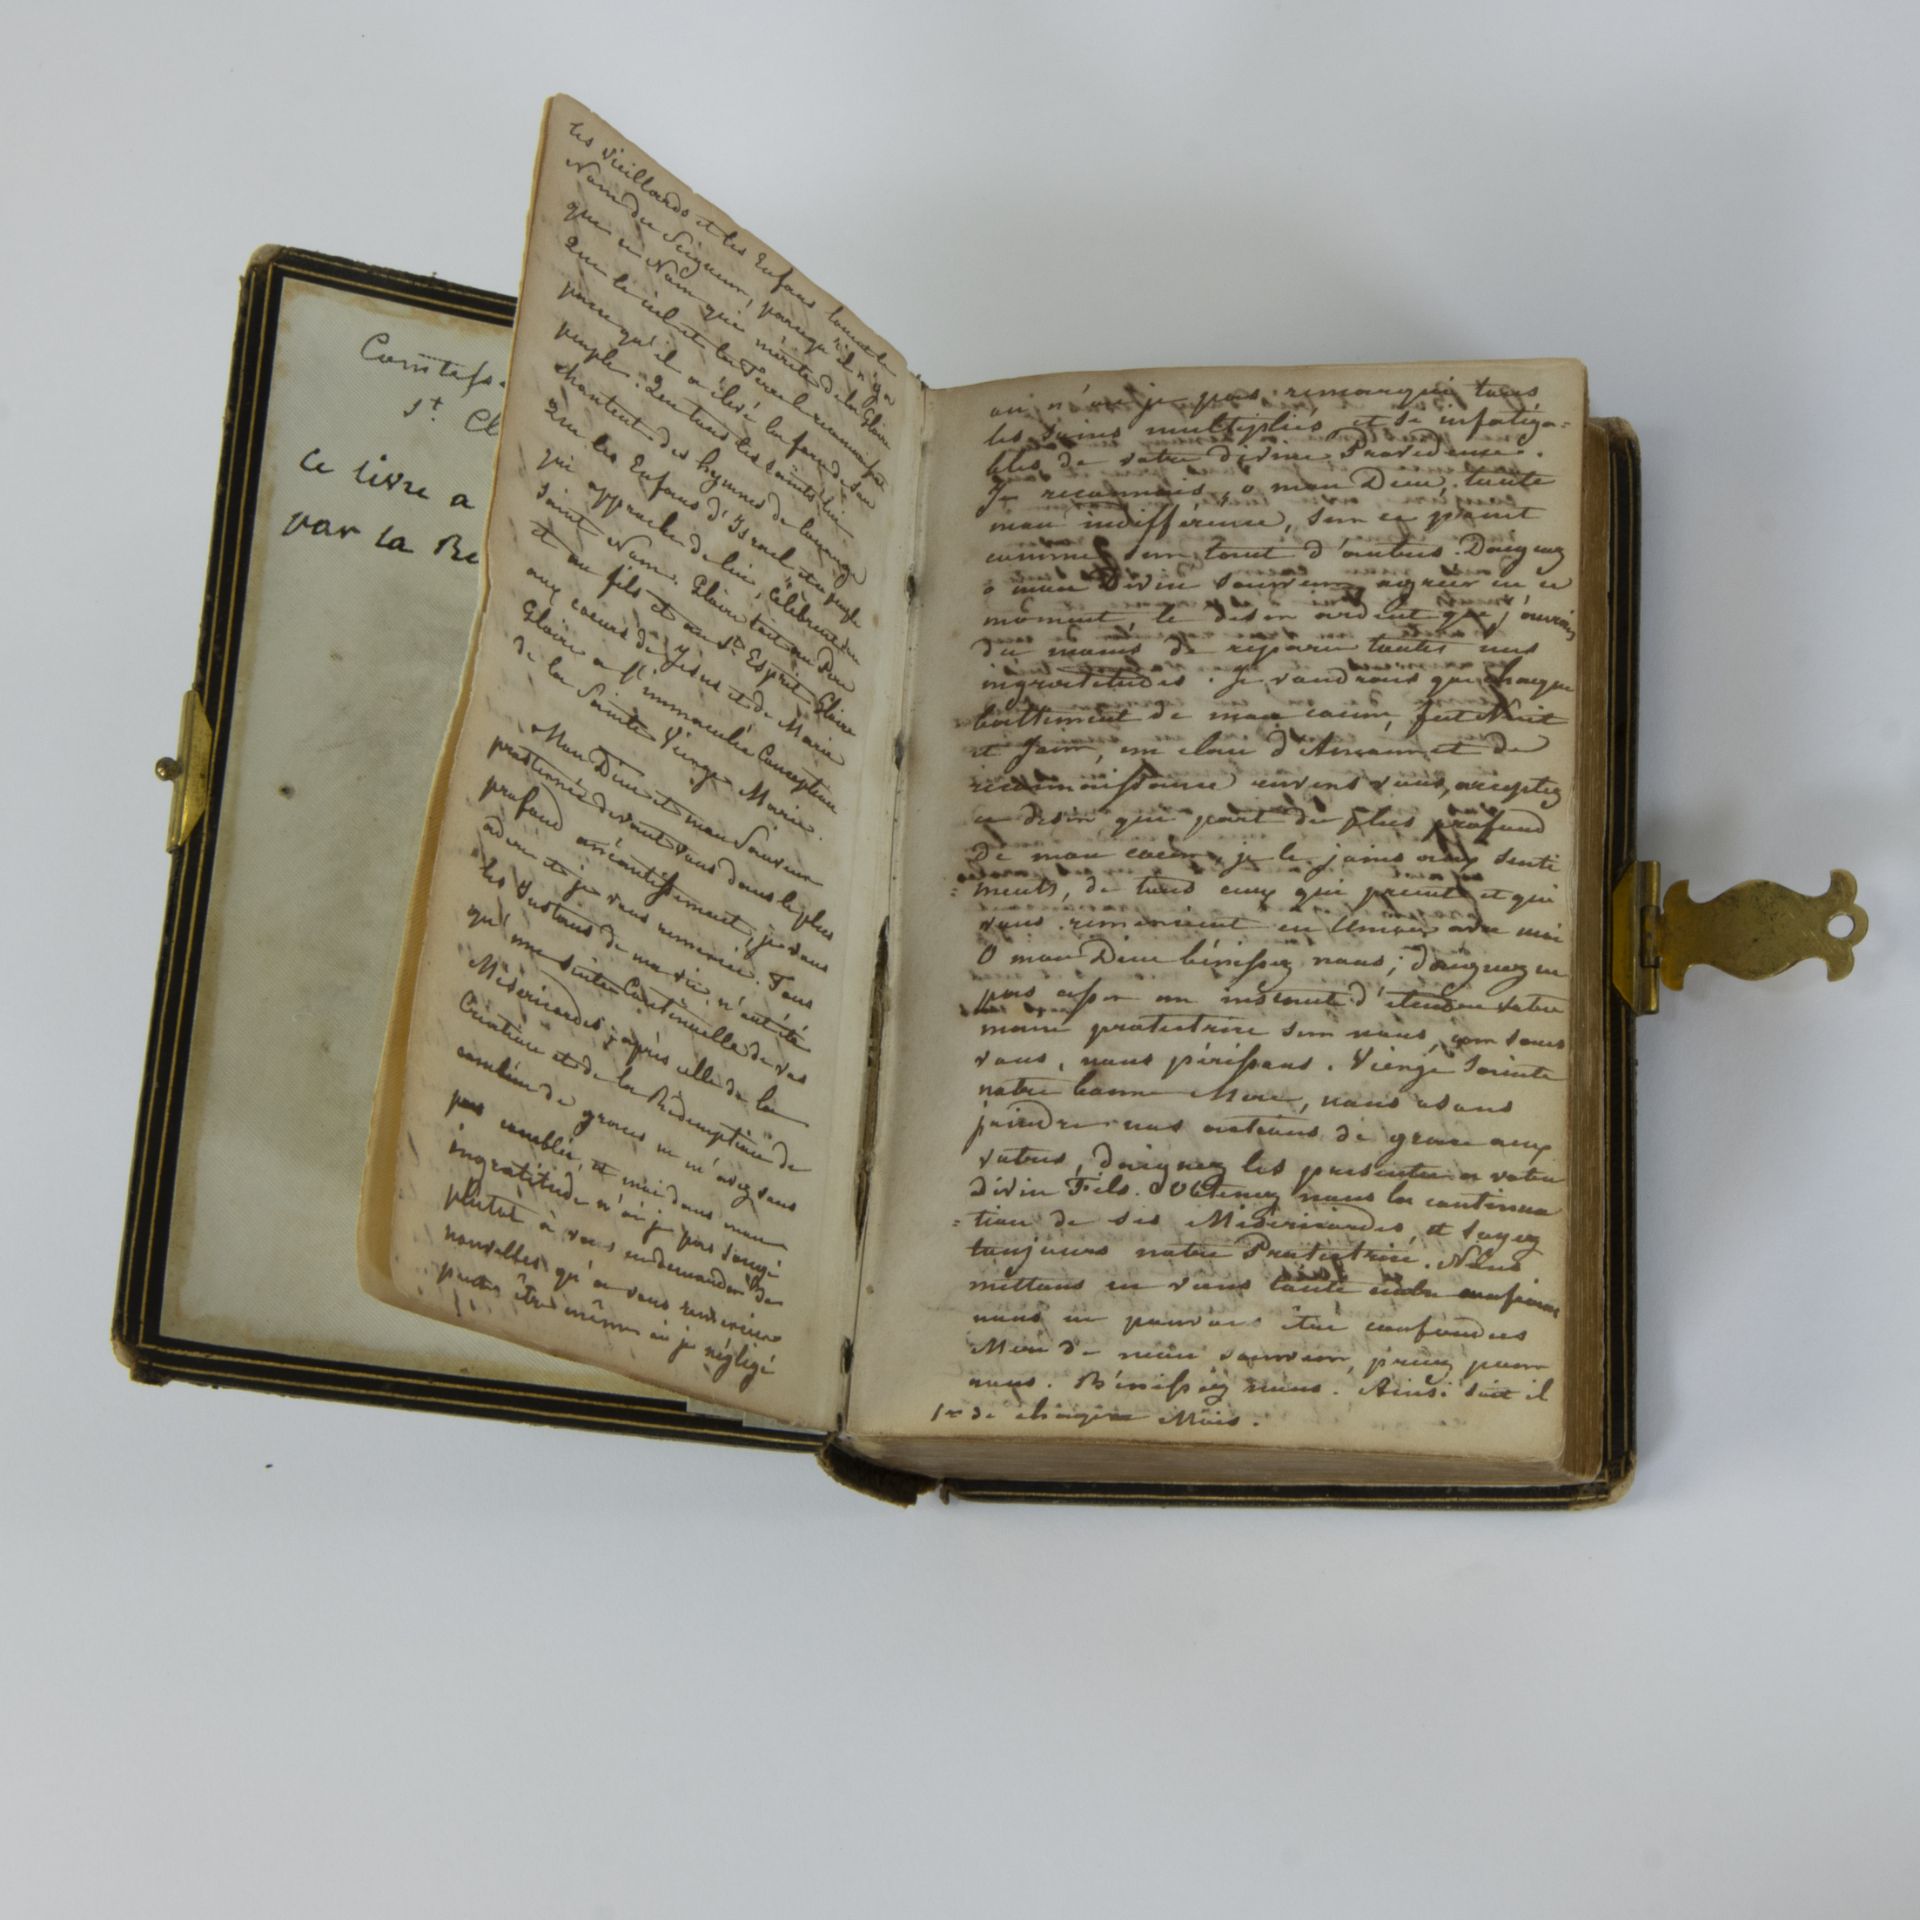 Comtesse
St. Cl
Ce livre a
par la Re
les Vieillards et les Enfans louent le
Nom du Seigneur, parcequ'il n'y a
que ce Nom qui mérite de la Gloire
Que le ciel et la Terre le reconnaisse
parcequ'il a élevé la force de son
peuple. Que tous les saints lui
chantent des hymnes de louange
Que les Enfans d'Israel et ce peuple
qui approche de lui, célèbrent son
Saint Nom. Gloire soit au Père
et au fils et au St. Esprit Gloire
aux coeurs de Jesus et de Marie
Gloire a l'immaculée Conception
de la Sainte Vierge Marie.
Mon Dieu et mon Sauveur
prosternée devant vous dans le plus
profond anéantissement, je vous
adore et je vous remercie. Tous
les Instans de ma vie, n'ont été
qu'une suite Continuelle de vos
Miséricordes; après celle de la
Création et de la Rédemption de
combien de graces ne m'avez vous
pas comblée, et moi dans mon
ingratitude n'ai je pas songé
plutot à vous en demander de
nouvelles qu'a vous remercier
peut être même ai je négligé
ou n'ai je pas remarqué tous
les soins multipliés et si infatiga=
bles de votre divine Providence.
Je reconnais, o mon Dieu, toute
mon indifférence, sur ce point
comme sur tout d'autres. Daignez
o mon Divin Sauveur agréer en ce
moment, le désir ardent que j'aurais
du moins de réparer toutes mes
ingratitudes. Je voudrais que chaque
battement de mon coeur, fut Nuit
et Jour, un élan d'Amour et de
reconnaissance envers vous, acceptez
ce désir qui part du plus profond
de mon coeur, je le joins aux senti
=ments, de tous ceux qui prient et qui
vous remercient en Union avec moi
O mon Dieu bénissez nous; daignez ne
pas cesser un instant d'étendre votre
main protectrice sur nous, car sans
vous, nous périssons. Vierge Sainte
notre bonne Mère, nous osons
joindre nos actions de grace aux
votres, daignez les présenter a votre
divin Fils. Obtenez nous la continua
=tion de ses Miséricordes, et soyez
toujours notre Protectrice. Nous
mettons en vous toute notre confiance
nous ne pouvons être confondus
Mère de mon sauveur, priez pour
nous. Bénissez nous. Ainsi soit il
1er de chaque Mois.